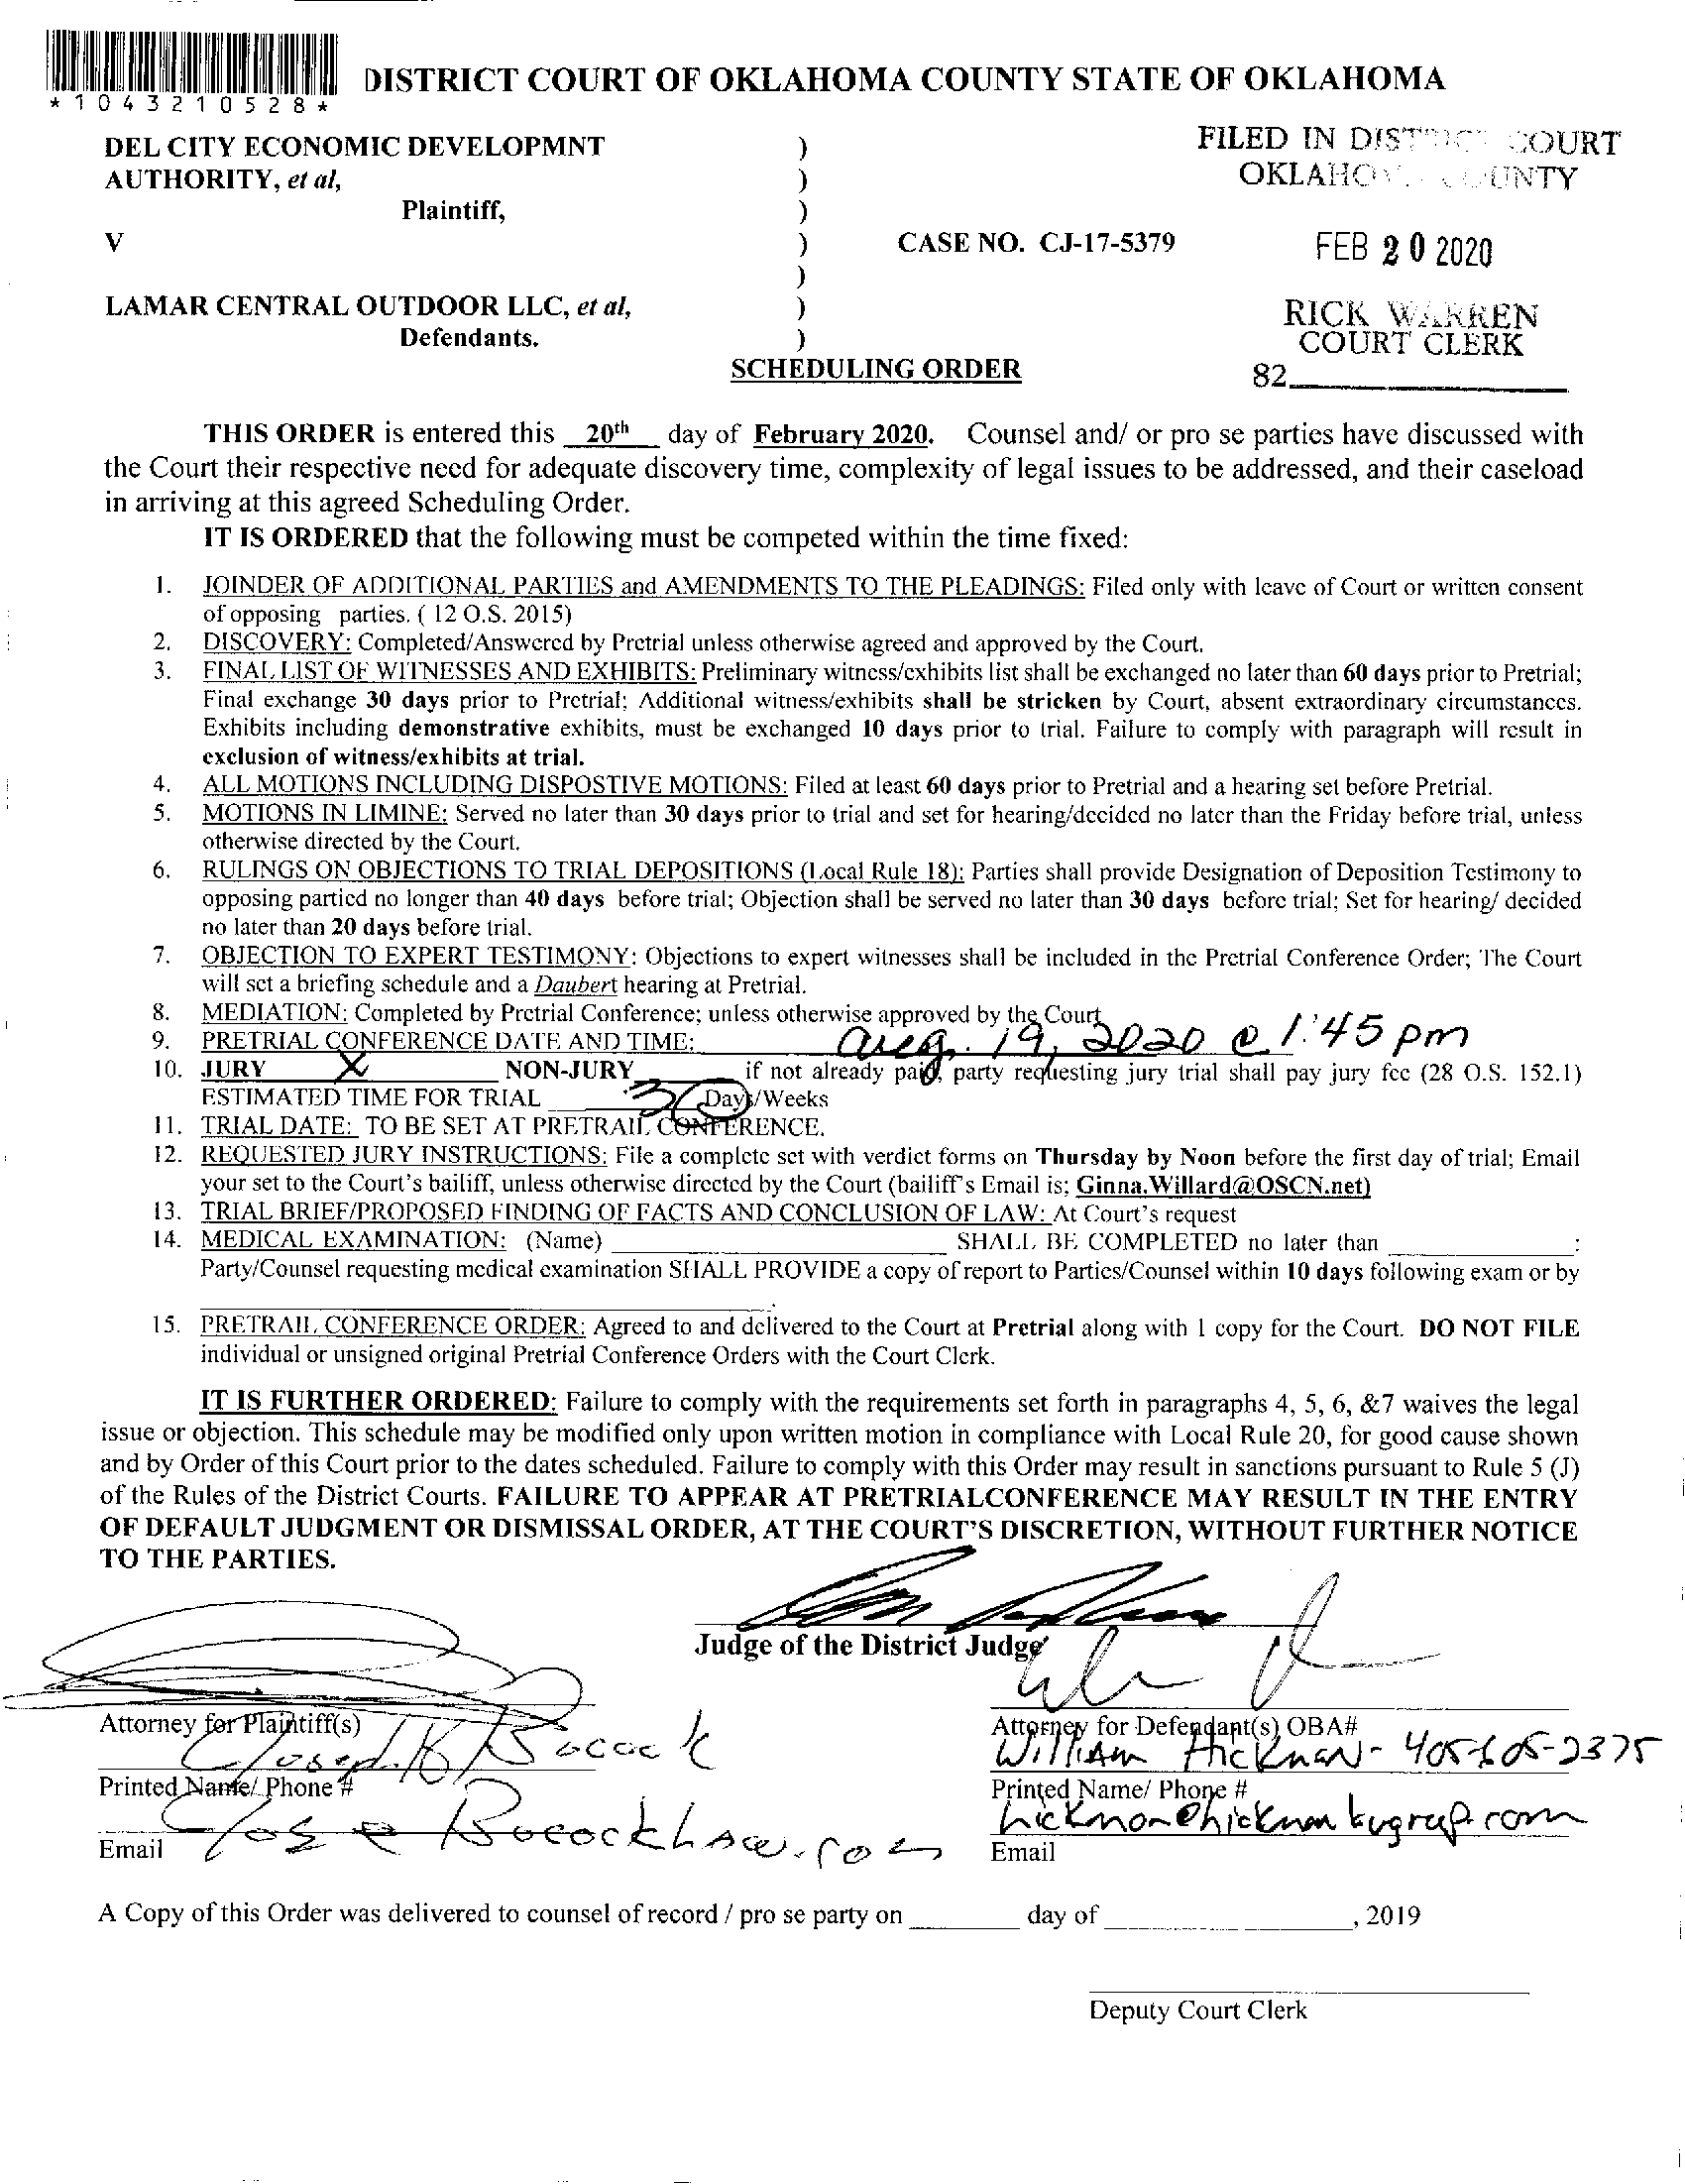 *1043210528*
DISTRICT COURT OF OKLAHOMA COUNTY STATE OF OKLAHOMA
DEL CITY ECONOMIC DEVELOPMNT )
AUTHORITY, et al, )
Plaintiff, )
V ) CASE NO. CJ-17-5379
)
LAMAR CENTRAL OUTDOOR LLC, et al, )
Defendants. )
FILED IN DISTRICT COURT
OKLAHOMA COUNTY
FEB 20 2020
RICK WARREN
COURT CLERK
82
SCHEDULING ORDER
THIS ORDER is entered this 20th day of February 2020. Counsel and/ or pro se parties have discussed with
the Court their respective need for adequate discovery time, complexity of legal issues to be addressed, and their caseload
in arriving at this agreed Scheduling Order.
IT IS ORDERED that the following must be competed within the time fixed:
1. JOINDER OF ADDITIONAL PARTIES and AMENDMENTS TO THE PLEADINGS: Filed only with leave of Court or written consent
of opposing parties. ( 12 O.S. 2015)
2. DISCOVERY: Completed/Answered by Pretrial unless otherwise agreed and approved by the Court.
3. FINAL LIST OF WITNESSES AND EXHIBITS: Preliminary witness/exhibits list shall be exchanged no later than 60 days prior to Pretrial;
Final exchange 30 days prior to Pretrial; Additional witness/exhibits shall be stricken by Court, absent extraordinary circumstances.
Exhibits including demonstrative exhibits, must be exchanged 10 days prior to trial. Failure to comply with paragraph will result in
exclusion of witness/exhibits at trial.
4. ALL MOTIONS INCLUDING DISPOSTIVE MOTIONS: Filed at least 60 days prior to Pretrial and a hearing set before Pretrial.
5. MOTIONS IN LIMINE: Served no later than 30 days prior to trial and set for hearing/decided no later than the Friday before trial, unless
otherwise directed by the Court.
6. RULINGS ON OBJECTIONS TO TRIAL DEPOSITIONS (Local Rule 18): Parties shall provide Designation of Deposition Testimony to
opposing partied no longer than 40 days before trial; Objection shall be served no later than 30 days before trial; Set for hearing/ decided
no later than 20 days before trial.
7. OBJECTION TO EXPERT TESTIMONY: Objections to expert witnesses shall be included in the Pretrial Conference Order; The Court
will set a briefing schedule and a Daubert hearing at Pretrial.
8. MEDIATION: Completed by Pretrial Conference; unless otherwise approved by the Court
9. PRETRIAL CONFERENCE DATE AND TIME: Aug. 19, 2020 @ 1:45 pm
10. JURY X NON-JURY if not already paid, party requesting jury trial shall pay jury fee (28 O.S. 152.1)
ESTIMATED TIME FOR TRIAL 3 Days/Weeks
11. TRIAL DATE: TO BE SET AT PRETRAIL CONFERENCE.
12. REQUESTED JURY INSTRUCTIONS: File a complete set with verdict forms on Thursday by Noon before the first day of trial; Email
your set to the Court's bailiff, unless otherwise directed by the Court (bailiff's Email is; Ginna.Willard@OSCN.net)
13. TRIAL BRIEF/PROPOSED FINDING OF FACTS AND CONCLUSION OF LAW: At Court's request
14. MEDICAL EXAMINATION: (Name) SHALL BE COMPLETED no later than :
Party/Counsel requesting medical examination SHALL PROVIDE a copy of report to Parties/Counsel within 10 days following exam or by
.
15. PRETRAIL CONFERENCE ORDER: Agreed to and delivered to the Court at Pretrial along with 1 copy for the Court. DO NOT FILE
individual or unsigned original Pretrial Conference Orders with the Court Clerk.
IT IS FURTHER ORDERED: Failure to comply with the requirements set forth in paragraphs 4, 5, 6, &7 waives the legal
issue or objection. This schedule may be modified only upon written motion in compliance with Local Rule 20, for good cause shown
and by Order of this Court prior to the dates scheduled. Failure to comply with this Order may result in sanctions pursuant to Rule 5 (J)
of the Rules of the District Courts. FAILURE TO APPEAR AT PRETRIALCONFERENCE MAY RESULT IN THE ENTRY
OF DEFAULT JUDGMENT OR DISMISSAL ORDER, AT THE COURT'S DISCRETION, WITHOUT FURTHER NOTICE
TO THE PARTIES.
Judge of the District Judge
Attorney for Plaintiff(s)
Joseph K Bocock
Printed Name/ Phone #
Joe @ Bococklaw.com
Email
Attorney for Defendant(s) OBA#
William Hickman - 405-605-2375
Printed Name/ Phone #
Email
A Copy of this Order was delivered to counsel of record / pro se party on day of , 2019
Deputy Court Clerk